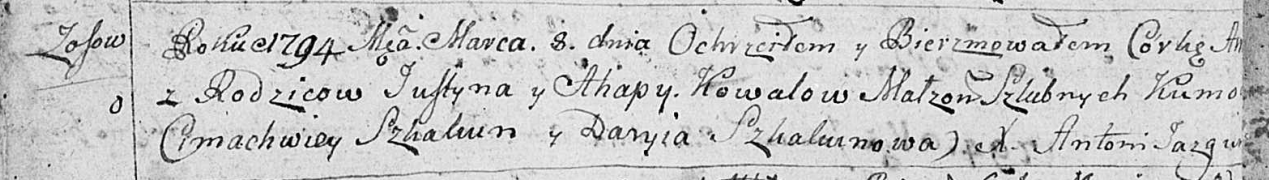 Zosow
Roku 1794 Mcā. Marca. 8. dnia Ochrzciłem y Bierzmowałem Corkę An
o z Rodzicow Justyna y Ahapy. Kowalow Małzon Szlubnych Kumo
Cimachwiey Szkalun y Daryia Szkalunowa) X. Antoni Jazgu